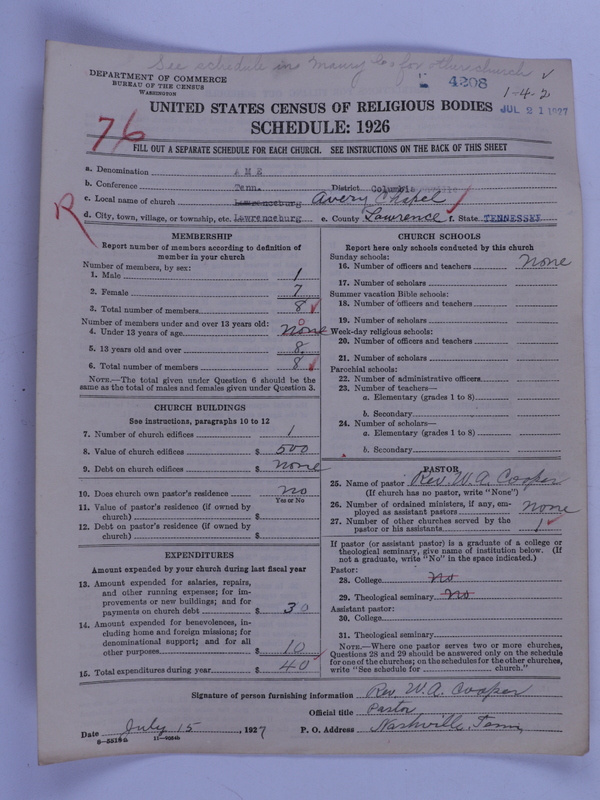 See schedule in Maury Co for other church
DEPARTMENT OF COMMERCE
BUREAU OF THE CENSUS
WASHINGTON
4208
1-4-2
UNITED STATES CENSUS OF RELIGIOUS BODIES
JUL 21 1927
SCHEDULE: 1926
76
FILL OUT A SEPARATE SCHEDULE FOR EACH CHURCH. SEE INSTRUCTIONS ON THE BACK OF THIS SHEET
a. Denomination A M E
b. Conference Tenn. District Columbia
c. Local name of church Lawrenceburg Avery Chapel
d. City, town, village, or township, etc. Lawrenceburg e. County Lawrence f. State TENNESSEE
R
MEMBERSHIP
Report number of members according to definition of
member in your church
Number of members, by sex:
1. Male 1
2. Female 7
3. Total number of members 8
Number of members under and over 13 years old:
4. Under 13 years of age 0 None
5. 13 years old and over 8
6. Total number of members 8
NOTE.—The total given under Question 6 should be the
same as the total of males and females given under Question 3.
CHURCH BUILDINGS
See instructions, paragraphs 10 to 12
7. Number of church edifices 1
8. Value of church edifices $ 500
9. Debt on church edifices $ None
10. Does church own pastor's residence No
Yes or No
11. Value of pastor's residence (if owned by
church) $
12. Debt on pastor's residence (if owned by
church) $
EXPENDITURES
Amount expended by your church during last fiscal year
13. Amount expended for salaries, repairs,
and other running expenses; for im-
provements or new buildings; and for
payments on church debt $ 30
14. Amount expended for benevolences, in-
cluding home and foreign missions; for
denominational support; and for all
other purposes $ 10
15. Total expenditures during year $ 40
CHURCH SCHOOLS
Report here only schools conducted by this church
Sunday schools:
16. Number of officers and teachers None
17. Number of scholars
Summer vacation Bible schools:
18. Number of officers and teachers
19. Number of scholars
Week-day religious schools:
20. Number of officers and teachers
21. Number of scholars
Parochial schools:
22. Number of administrative officers
23. Number of teachers—
a. Elementary (grades 1 to 8)
b. Secondary
24. Number of scholars—
a. Elementary (grades 1 to 8)
b. Secondary
PASTOR
25. Name of pastor Rev. W. A. Cooper
(If church has no pastor, write "None")
26. Number of ordained ministers, if any, em-
ployed as assistant pastors None
27. Number of other churches served by the
pastor or his assistants 1
If pastor (or assistant pastor) is a graduate of a college or
theological seminary, give name of institution below. (If
not a graduate, write "No" in the space indicated.)
Pastor:
28. College No
29. Theological seminary No
Assistant pastor:
30. College
31. Theological seminary
NOTE.—Where one pastor serves two or more churches,
Questions 28 and 29 should be answered only on the schedule
for one of the churches; on the schedules for the other churches,
write "See schedule for church."
Signature of person furnishing information Rev. W. A. Cooper
Official title Pastor
Date July 15, 1927 P. O. Address Nashville, Tenn.